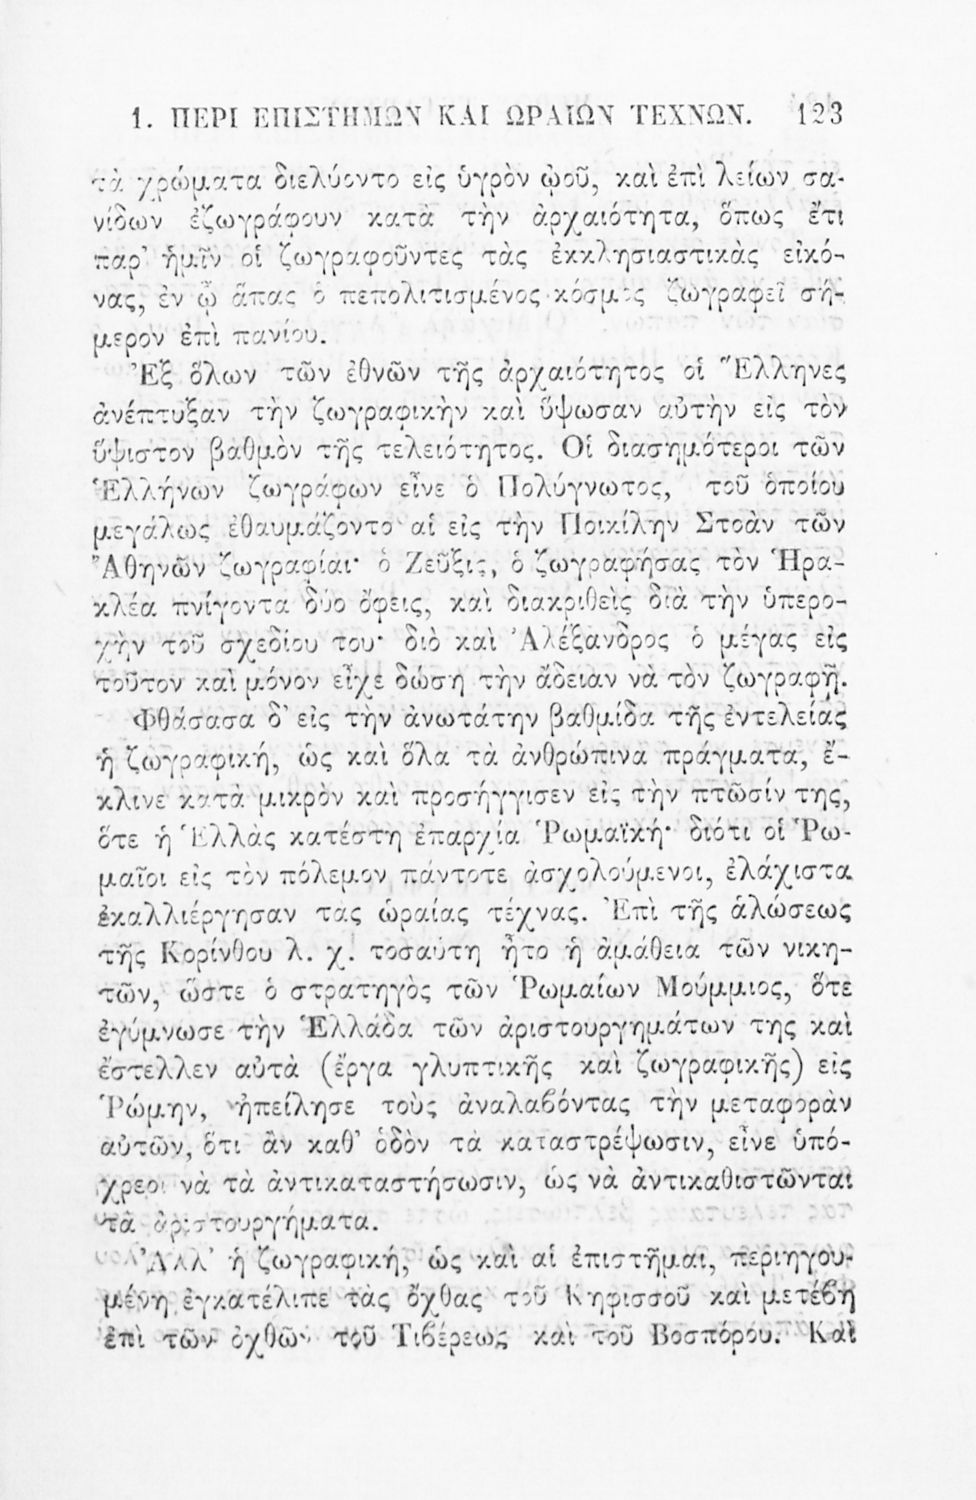 1. ΠΕΡΙ ΕΠΙΣΤΗΜΩΝ ΚΑΙ ΩΡΑΙΩΝ ΤΕΧΝΩΝ. 123
τὰ χρώματα διελύοντο εἰς ὑγρὸν ᾠοῦ, καὶ ἐπὶ λείων σα-
νίδων ἐζωγράφουν κατὰ τὴν ἀρχαιότητα, ὅπως ἔτι
παρ' ἡμῖν οἱ ζωγραφοῦντες τὰς ἐκκλησιαστικὰς εἰκό-
νας, ἐν ᾧ ἅπας ὁ πεπολιτισμένος κόσμος ζωγραφεῖ σή-
μερον ἐπὶ πανίου.
Ἐξ ὅλων τῶν ἐθνῶν τῆς ἀρχαιότητος οἱ Ἕλληνες
ἀνέπτυξαν τὴν ζωγραφικὴν καὶ ὕψωσαν αὐτὴν εἰς τὸν
ὕψιστον βαθμὸν τῆς τελειότητος. Οἱ διασημότεροι τῶν
Ἑλλήνων ζωγράφων εἶνε ὁ Πολύγνωτος, τοῦ ὁποίου
μεγάλως ἐθαυμάζοντο αἱ εἰς τὴν Ποικίλην Στοὰν τῶν
Ἀθηνῶν ζωγραφίαι· ὁ Ζεῦξις, ὁ ζωγραφήσας τὸν Ἡρα-
κλέα πνίγοντα δύο ὄφεις, καὶ διακριθεὶς διὰ τὴν ὑπερο-
χὴν τοῦ σχεδίου του· διὸ καὶ Ἀλέξανδρος ὁ μέγας εἰς
τοῦτον καὶ μόνον εἶχε δώσῃ τὴν ἄδειαν νὰ τὸν ζωγραφῇ.
Φθάσασα δ' εἰς τὴν ἀνωτάτην βαθμίδα τῆς ἐντελείας
ἡ ζωγραφική, ὡς καὶ ὅλα τὰ ἀνθρώπινα πράγματα, ἔ-
κλινε κατὰ μικρὸν καὶ προσήγγισεν εἰς τὴν πτῶσίν της,
ὅτε ἡ Ἑλλὰς κατέστη ἐπαρχία Ῥωμαϊκή· διότι οἱ Ῥω-
μαῖοι εἰς τὸν πόλεμον πάντοτε ἀσχολούμενοι, ἐλάχιστα
ἐκαλλιέργησαν τὰς ὡραίας τέχνας. Ἐπὶ τῆς ἁλώσεως
τῆς Κορίνθου λ. χ. τοσαύτη ἦτο ἡ ἀμάθεια τῶν νικη-
τῶν, ὥστε ὁ στρατηγὸς τῶν Ῥωμαίων Μούμμιος, ὅτε
ἐγύμνωσε τὴν Ἑλλάδα τῶν ἀριστουργημάτων της καὶ
ἔστελλεν αὐτὰ (ἔργα γλυπτικῆς καὶ ζωγραφικῆς) εἰς
Ῥώμην, ἠπείλησε τοὺς ἀναλαβόντας τὴν μεταφορὰν
αὐτῶν, ὅτι ἂν καθ' ὁδὸν τὰ καταστρέψωσιν, εἶνε ὑπό-
χρεοι νὰ τὰ ἀντικαταστήσωσιν, ὡς νὰ ἀντικαθιστῶνται
τὰ ἀριστουργήματα.
Ἀλλ' ἡ ζωγραφική, ὡς καὶ αἱ ἐπιστῆμαι, περιηγου-
μένη ἐγκατέλιπε τὰς ὄχθας τοῦ Κηφισσοῦ καὶ μετέβη
ἐπὶ τῶν ὀχθῶν τοῦ Τιβέρεως καὶ τοῦ Βοσπόρου. Καὶ